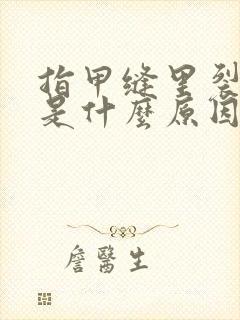 指甲缝里裂
是什麼原因
詹醫生